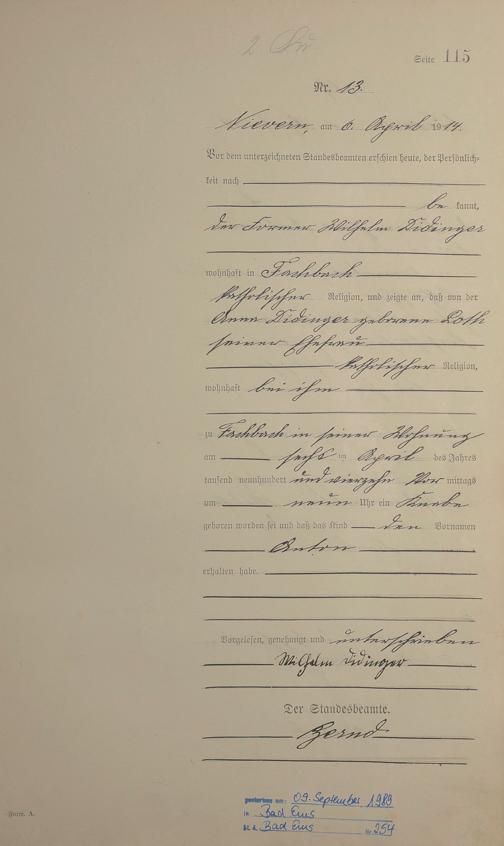 Seite 115
Nr. 13.
Nievern, am 6. April 1914.
Vor dem unterzeichneten Standesbeamten erschien heute, der Persönlich-
keit nach
be kannt,
der Former Wilhelm Didinger
wohnhaft in Fachbach
katholischer Religion, und zeigte an, daß von der
Anna Didinger geborene Roth
seiner Ehefrau
katholischer Religion,
wohnhaft bei ihm
zu Fachbach in seiner Wohnung
am sechs ten April des Jahres
tausend neunhundert und vierzehn Vor mittags
um neun Uhr ein Knabe
geboren worden sei und daß das Kind den Vornamen
Anton
erhalten habe.
Vorgelesen, genehmigt und unterschrieben
Wilhelm Didinger
Der Standesbeamte.
gestorben am: 09. September 1989
in Bad Ems
St. A. Bad Ems Nr. 254
Form. A.